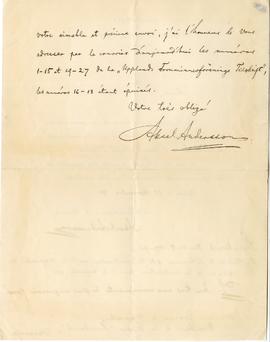 votre aimable et précieux envoi, j'ai l'honneur de vous
adresser par le courrier d'aujourd'hui les numéros
1-15 et 19-27 de la „Upplands Fornminnesförenings Tidskrift",
les numéros 16-18 étant épuisés.
Votre très obligé
Axel Andersson